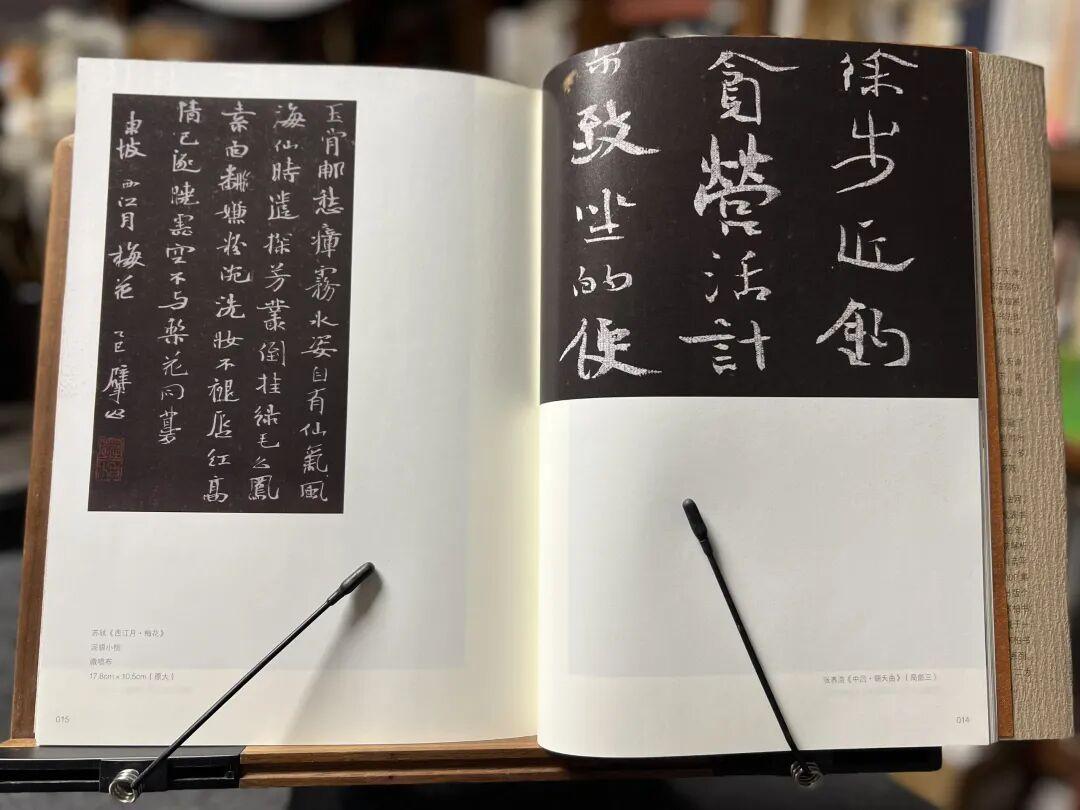 徐步近釣
貪營活計
致坐的便
张养浩《中吕·朝天曲》（局部三）
014
玉骨那愁瘴霧氷姿自有仙氣風
海仙時遣探芳叢倒挂绿毛么鳳
素面翻嫌粉涴洗妝不褪唇红高
情已逐曉雲空不与梨花同夢
東坡 西江月 梅花 乙巳
苏轼《西江月·梅花》
泥银小楷
17.8cm×10.5cm（原大）
015